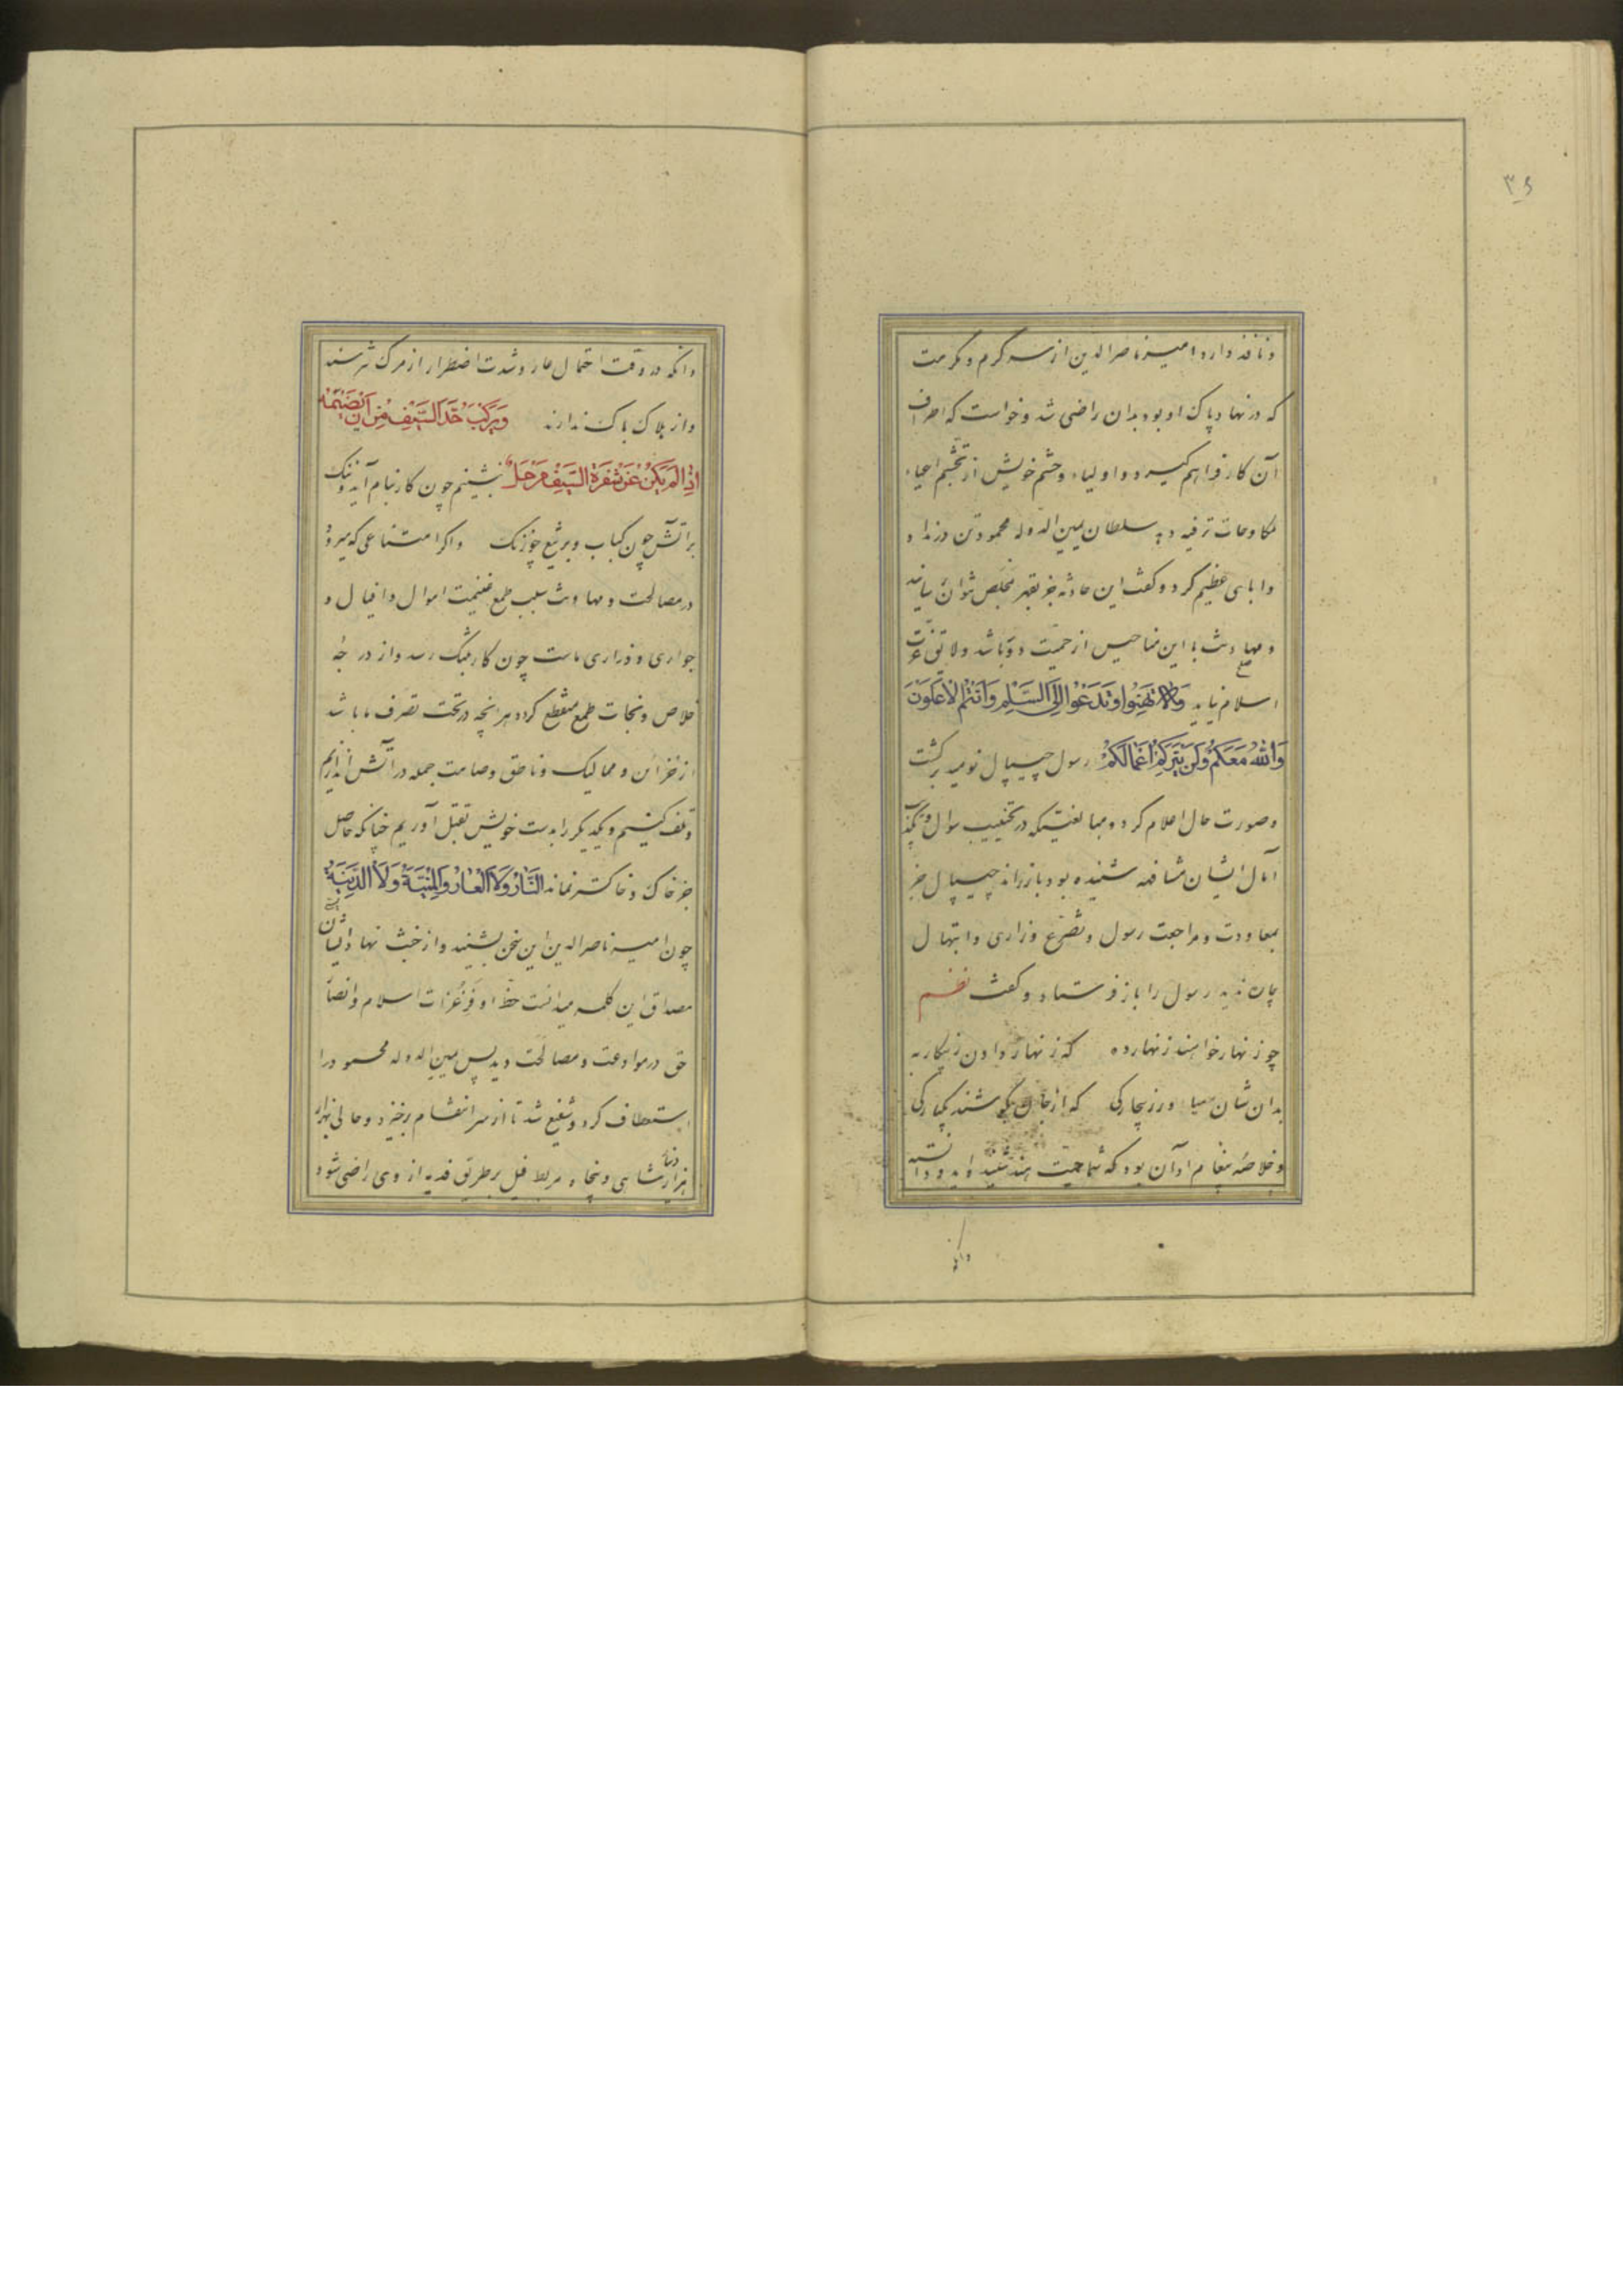 ۳۶
و نافذ دارد امیر ناصرالدین از سر کرم و مکرمت
که در نهاد پاک او بود بدان راضی شد و خواست که اطراف
آن کار فراهم گیرد و اولیاء و حشم خویش از تجشم اعباء
مکاوحات ترفیه دهد سلطان یمین الدوله محمود تن درنداد
و ابایی عظیم کرد و گفت این حادثه جز بقهر بتخلص نتوان رسانید
و مهادنت با این مناحیس از حمیت دور باشد و لایق عزت
اسلام نیاید وَلَا تَهِنُوا وَتَدْعُوا اِلَی السَّلْمِ وَاَنْتُمُ الْاَعْلَوْنَ
وَاللهُ مَعَكُمْ وَلَنْ يَتِرَكُمْ اَعْمَالَكُمْ رسول جیپال نومید برگشت
و صورت حال اعلام کرد و مبالغتی که در تخییب سوال و تکذیب
آمال ایشان مشافهه شنیده بود باز راند جیپال جز
بمعاودت و مراجعت رسول و تضرع و زاری و ابتهال
چاره ندید رسول را باز فرستاد و گفت نظم
چو زنهار خواهند زنهار ده که زنهار دادن ز پیکار به
بدان شان میاور ز بیچارگی که از جان بگوشند یکبارگی
و خلاصه پیغام او آن بود که شما حمیت هند شنیده اید و دانسته
وانکه
وانکه در وقت احتمال عار و شدت اضطرار از مرگ نترسند
و از هلاک باک ندارند وَيَرْكَبُ حَدَّ السَّيْفِ مِنْ اَنْ تَضِيمَهُ
اِذَا لَمْ يَكُنْ عَنْ شَفْرَةِ السَّيْفِ مَزْحَلُ بنشینیم چون کار بنام آید و ننگ
بر آتش چون کباب و بر تیغ چو زنگ و اگر امتناعی که میرود
در مصالحت و مهادنت بسبب طمع غنیمت اموال و افیال و
جواری و ذراری ماست چون کار بتنگ رسد و از درجه
خلاص و نجات طمع منقطع گردد هر آنچه در تحت تصرف ما باشد
از خزائن و ممالیک و ناطق و صامت جمله در آتش اندازیم
و تلف کنیم و یکدیگر را بدست خویش بقتل آوریم چنانکه حاصل
جز خاک و خاکستر نماند النَّارُ وَلَا الْعَارُ وَالْمَنِيَّةُ وَلَا الدَّنِيَّةُ
چون امیر ناصرالدین این سخن بشنید و از خبث نهاد ایشان
مصداق این کلمه میدانست حظ اوفر عزات اسلام و انصار
حق در موادعت و مصالحت دید پس یمین الدوله محمود را
استعطاف کرد و شفیع شد تا از سر انتقام برخیزد و حالی بهزار
هزار دینار شاهی و پنجاه مربط فیل بر طریق فدیه از وی راضی شود